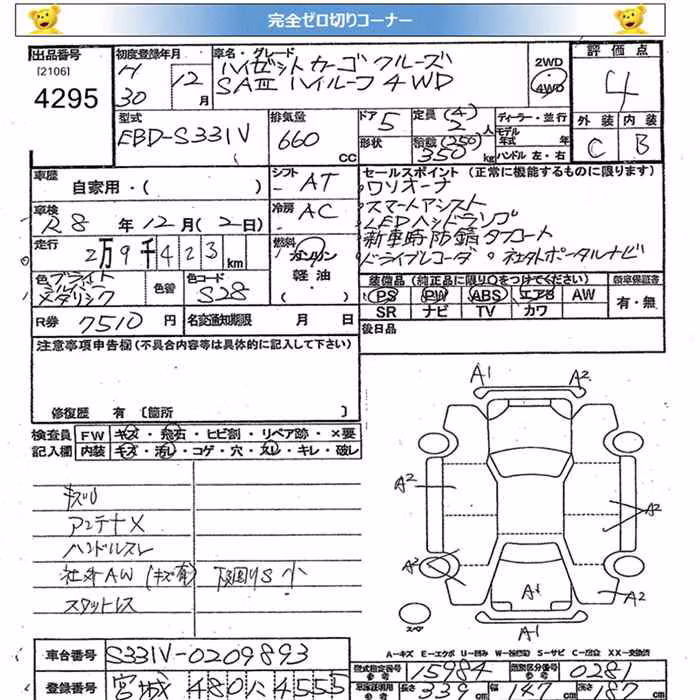 完全ゼロ切りコーナー
出品番号
[2106]
4295
初度登録年月
H30 12月
車名・グレード
ハイゼットカーゴ クルーズ
SAⅢ ハイルーフ 4WD
2WD
4WD
評価点
4
外装 内装
C B
型式
EBD-S331V
排気量
660
CC
ドア 5
形状
定員 (4)
2人
積載 (250)
350 kg
ディーラー・並行
モデル年式 年
ハンドル 左・右
車歴
自家用・( )
シフト AT
冷房 AC
車検
R8年12月(2日)
走行
2万9千423km
燃料
ガソリン
軽油・
色 ブライトシルバーメタリック
色替
色コード
S28
R券 7510円
名変通知期限 月 日
セールスポイント (正常に機能するものに限ります)
ワンオーナ
スマートアシスト
LEDヘッドランプ
新車時防錆タフコート
ドライブレコーダ ・社外ポータルナビ
装備品 (純正品に限り○をつけてください)
PS PW ABS エアB AW
SR ナビ TV カワ
新車保証書
有・無
後日品
注意事項申告欄(不具合内容等は具体的に記入して下さい)
修復歴 有 〔箇所 〕
検査員
記入欄
FW キズ・飛石・ヒビ割・リペア跡・×要
内装 キズ・汚し・コゲ・穴・スレ・キレ・破レ
キズU
アンテナX
ハンドルスレ
社外AW(キズ有) 下回りS小
スタットレス
A1
A2
A2
A2
A2
A1
A2
A1
スペア
A-キズ E-エクボ U-凹み W-補修跡 S-サビ C-腐食 XX-交換済
車台番号 S331V-0209893
登録番号 宮城 480 に 4555
型式指定番号
参考
15984
類別区分番号
参考
0281
長さ 339 cm
幅 147 cm
高さ 187 cm